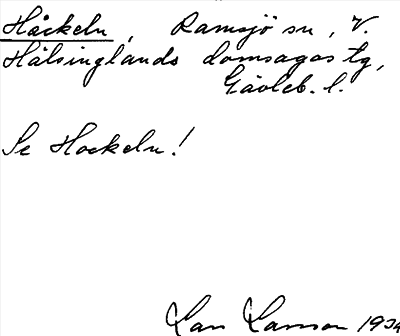 Håckeln, Ramsjö sn, V.
Hälsinglands domsagas tg,
Gävleb. l.
Se Hockeln!
Lars Larsson